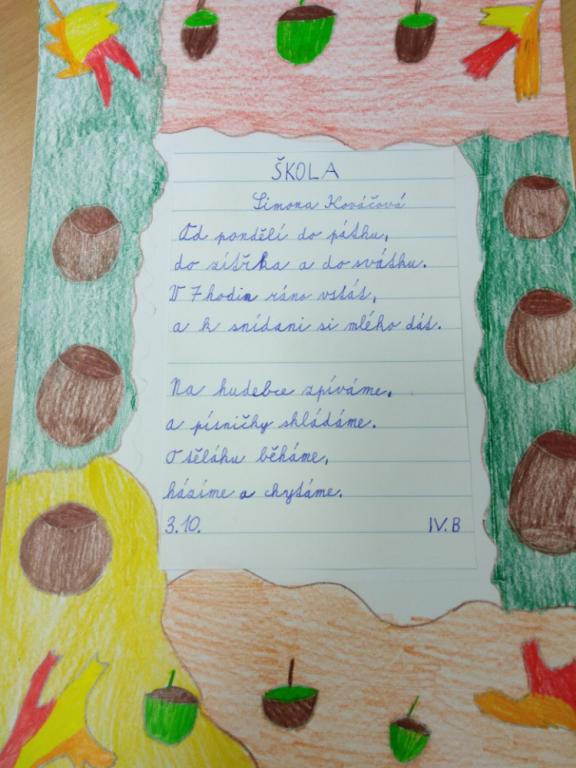 ŠKOLA
Simona Kováčová
Od pondělí do pátku,
do zítřka a do svátku.
V 7 hodin ráno vstát,
a k snídani si mléko dát.
Na hudebce zpíváme,
a písničky skládáme.
O těláku běháme,
házíme a chytáme.
3.10. IV.B